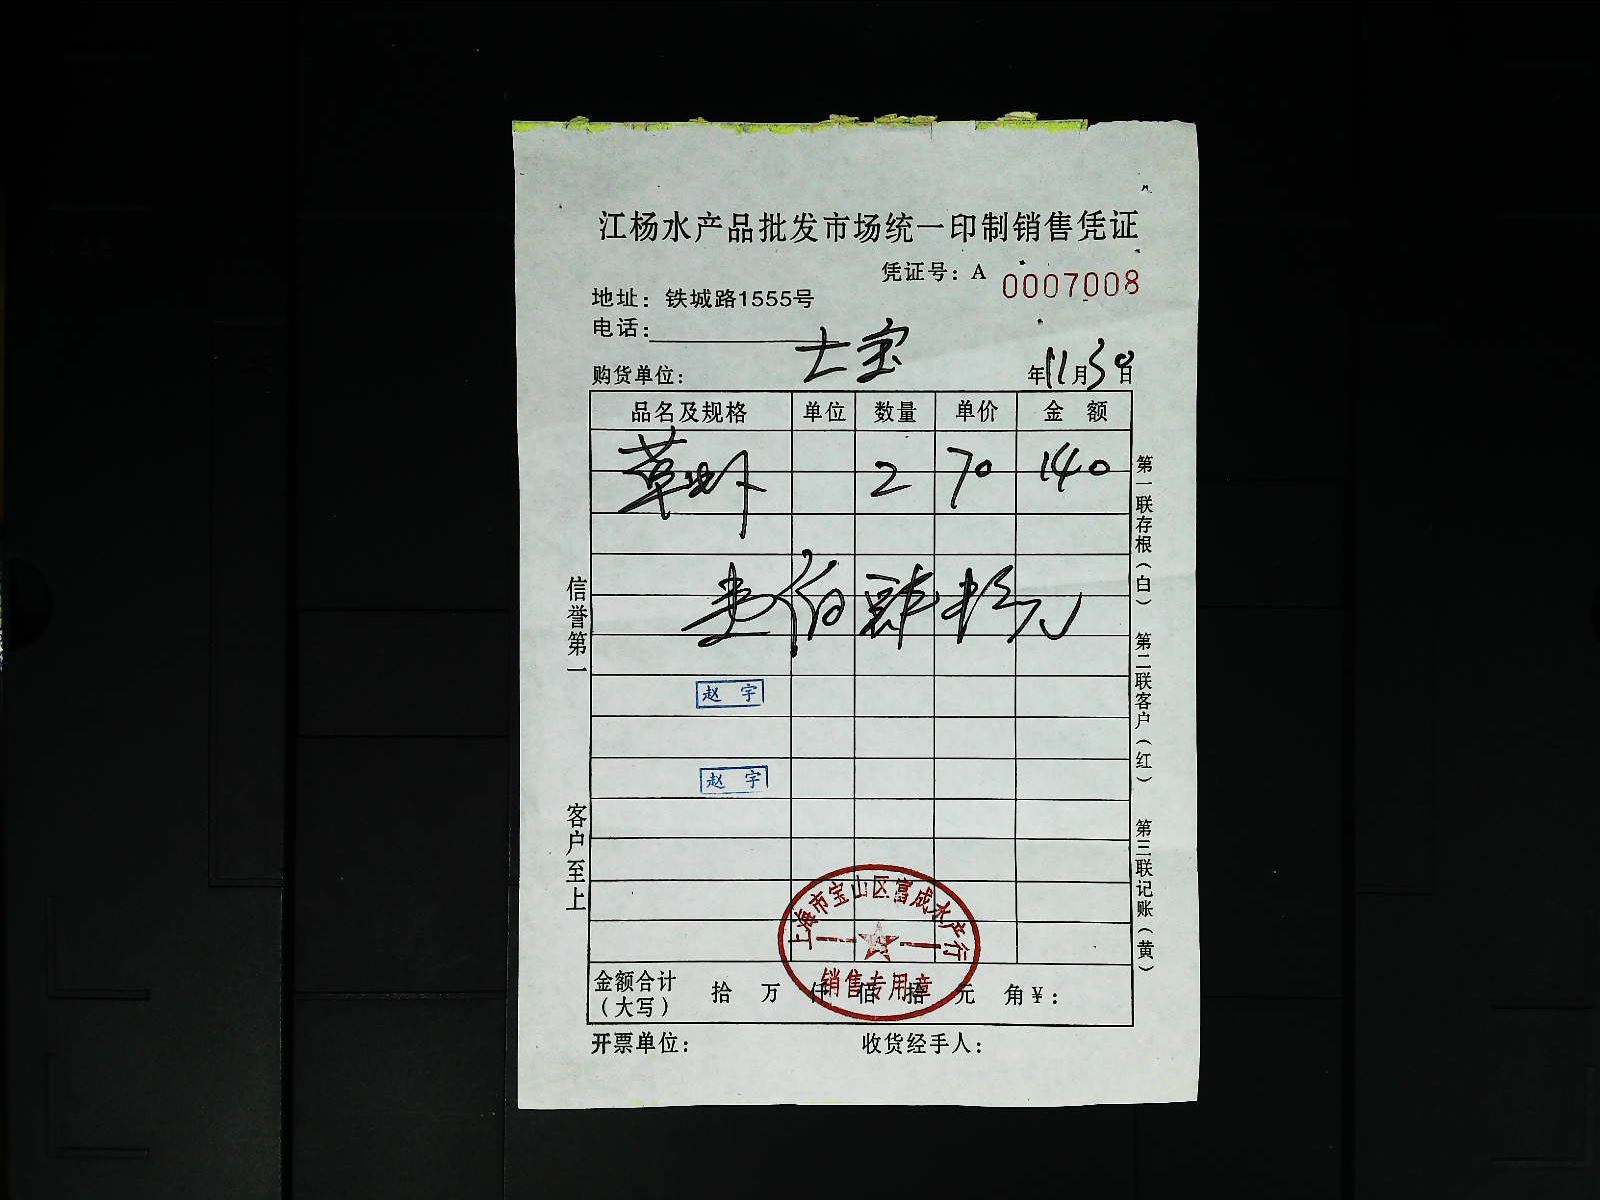 江杨水产品批发市场统一印制销售凭证
凭证号：A 0007008
地址：铁城路1555号
电话：
购货单位： 士宝 年11月30日
品名及规格 单位 数量 单价 金 额
草虾 2 70 140
壹佰肆拾元
赵 宇
赵 宇
上海市宝山区富成水产行
销售专用章
金额合计（大写） 拾 万 仟 佰 拾 元 角￥：
开票单位： 收货经手人：
信誉第一 客户至上
第一联存根（白） 第二联客户（红） 第三联记账（黄）